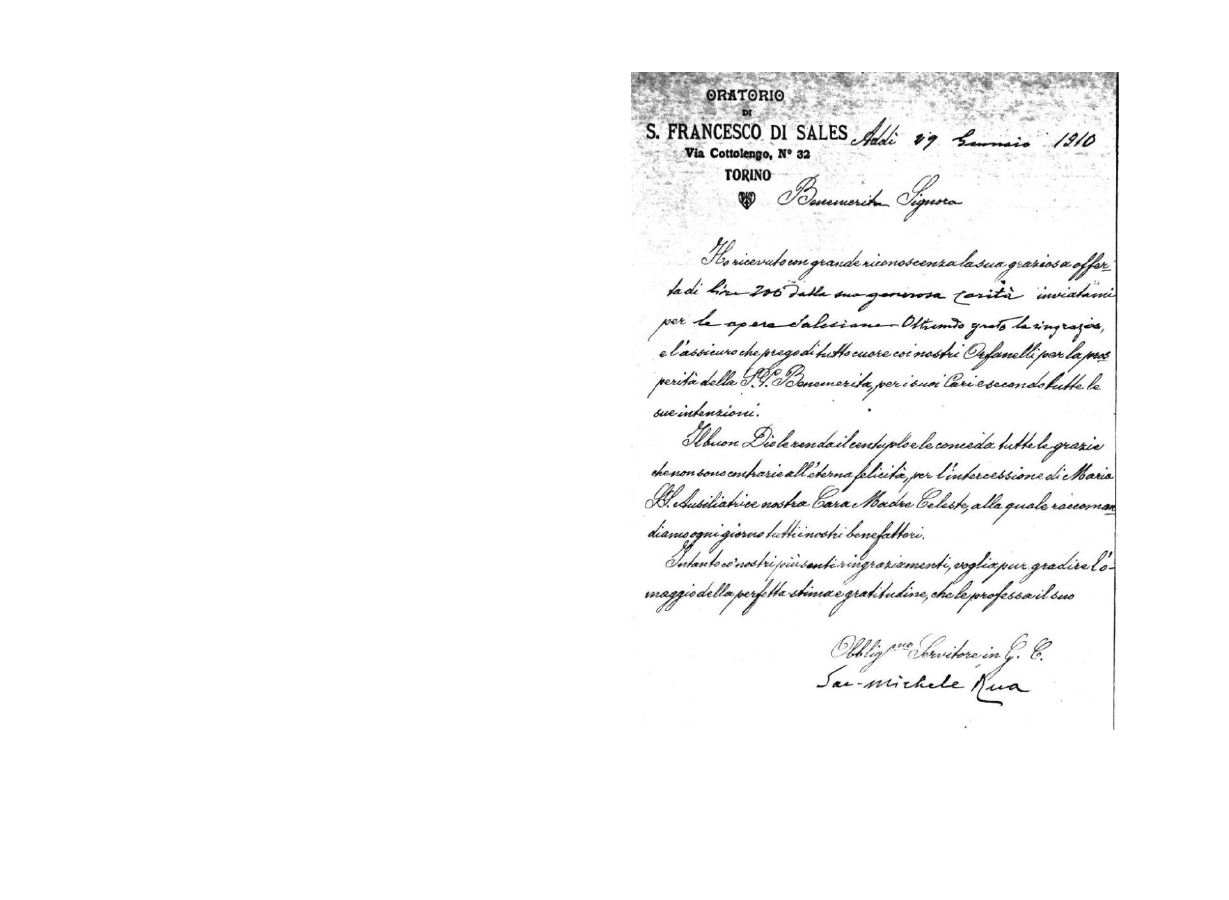 ORATORIO
DI
S. FRANCESCO DI SALES
Via Cottolengo, Nº 32
TORINO
Addì 29 Gennaio 1910
Benemerita Signora
Ho ricevuto con grande riconoscenza la sua graziosa offer-
ta di lire 200 dalla sua generosa carità inviatami
per le opere Salesiane. Oltremodo grato la ringrazio,
e l'assicuro che prego di tutto cuore coi nostri Orfanelli per la pros
perità della S. V. Benemerita, per i suoi Cari e secondo tutte le
sue intenzioni.
Il buon Dio le renda il centuplo e le conceda tutte le grazie
che non sono contrarie all'eterna felicità, per l'intercessione di Maria
SS. Ausiliatrice nostra Cara Madre Celeste, alla quale raccoman
diamo ogni giorno tutti i nostri benefattori.
Intanto co' nostri più sentiti ringraziamenti, voglia pur gradire l'o-
maggio della perfetta stima e gratitudine, che le professa il suo
Obblig.mo Servitore in G. C.
Sac. Michele Rua